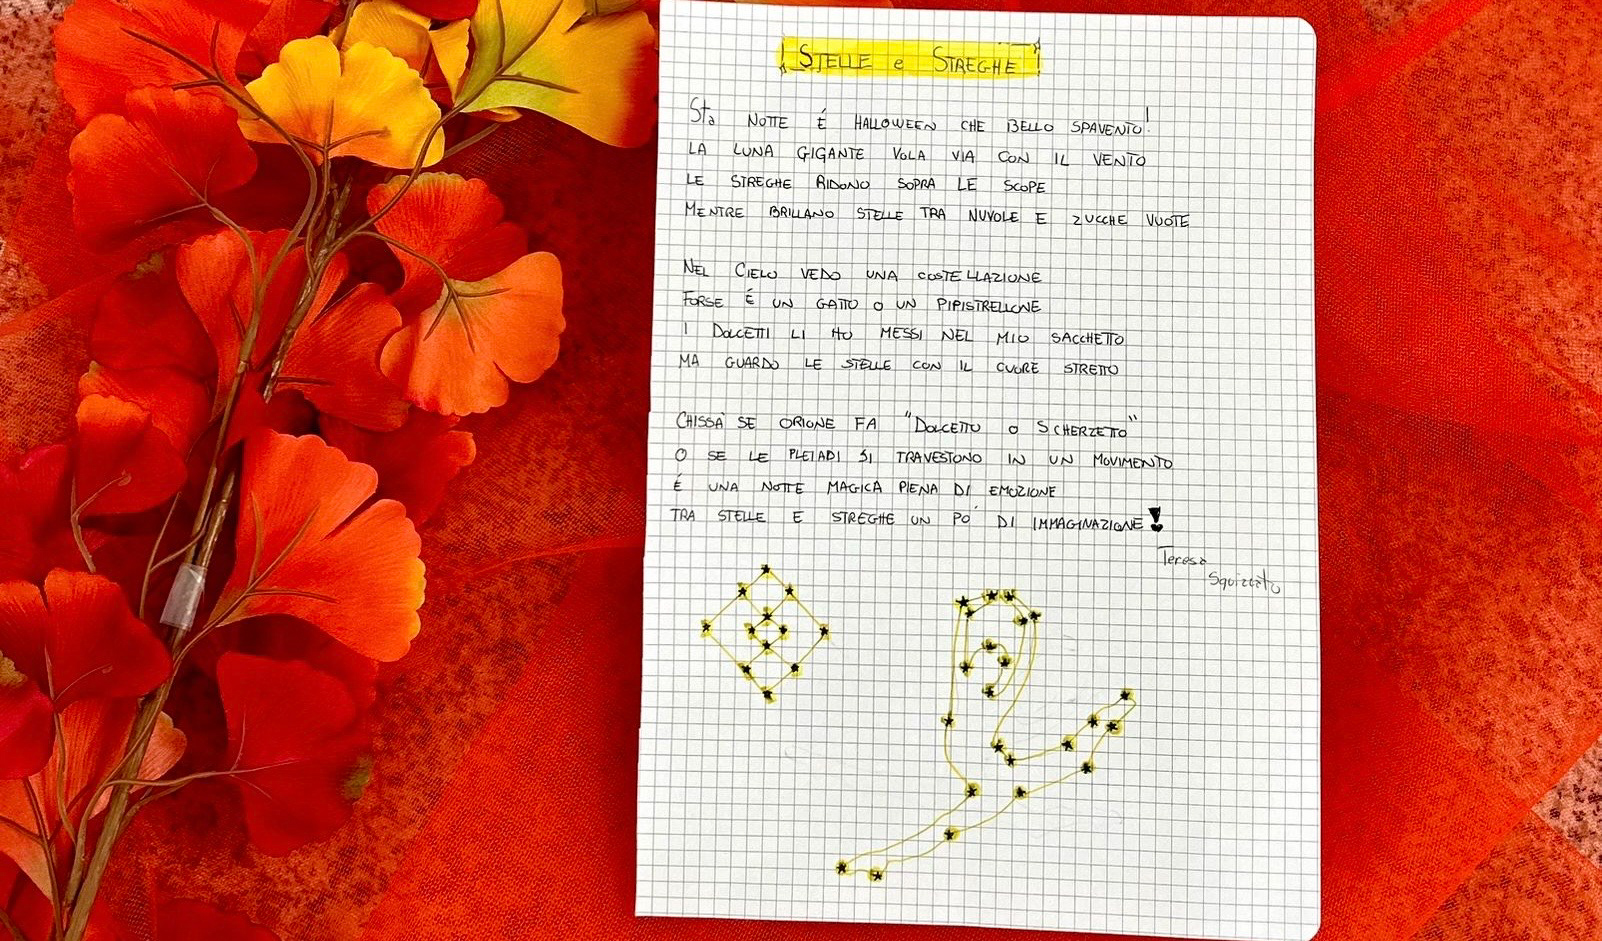 STELLE e STREGHE
Sta NOTTE É HALLOWEEN CHE BELLO SPAVENTO!
LA LUNA GIGANTE VOLA VIA CON IL VENTO
LE STREGHE RIDONO SOPRA LE SCOPE
MENTRE BRILLANO STELLE TRA NUVOLE E ZUCCHE VUOTE
NEL CIELO VEDO UNA COSTELLAZIONE
FORSE É UN GATTO O UN PIPISTRELLONE
I DOLCETTI LI HO MESSI NEL MIO SACCHETTO
MA GUARDO LE STELLE CON IL CUORE STRETTO
CHISSÀ SE ORIONE FA "DOLCETTO O SCHERZETTO"
O SE LE PLEIADI SI TRAVESTONO IN UN MOVIMENTO
É UNA NOTTE MAGICA PIENA DI EMOZIONE
TRA STELLE E STREGHE UN PO' DI IMMAGINAZIONE!
Teresa
Squizzato